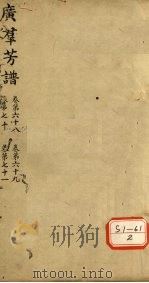 廣羣芳譜
卷第六十八
卷第六十九
卷第七十
卷第七十一
S1-61
2
www.toutuwu.com